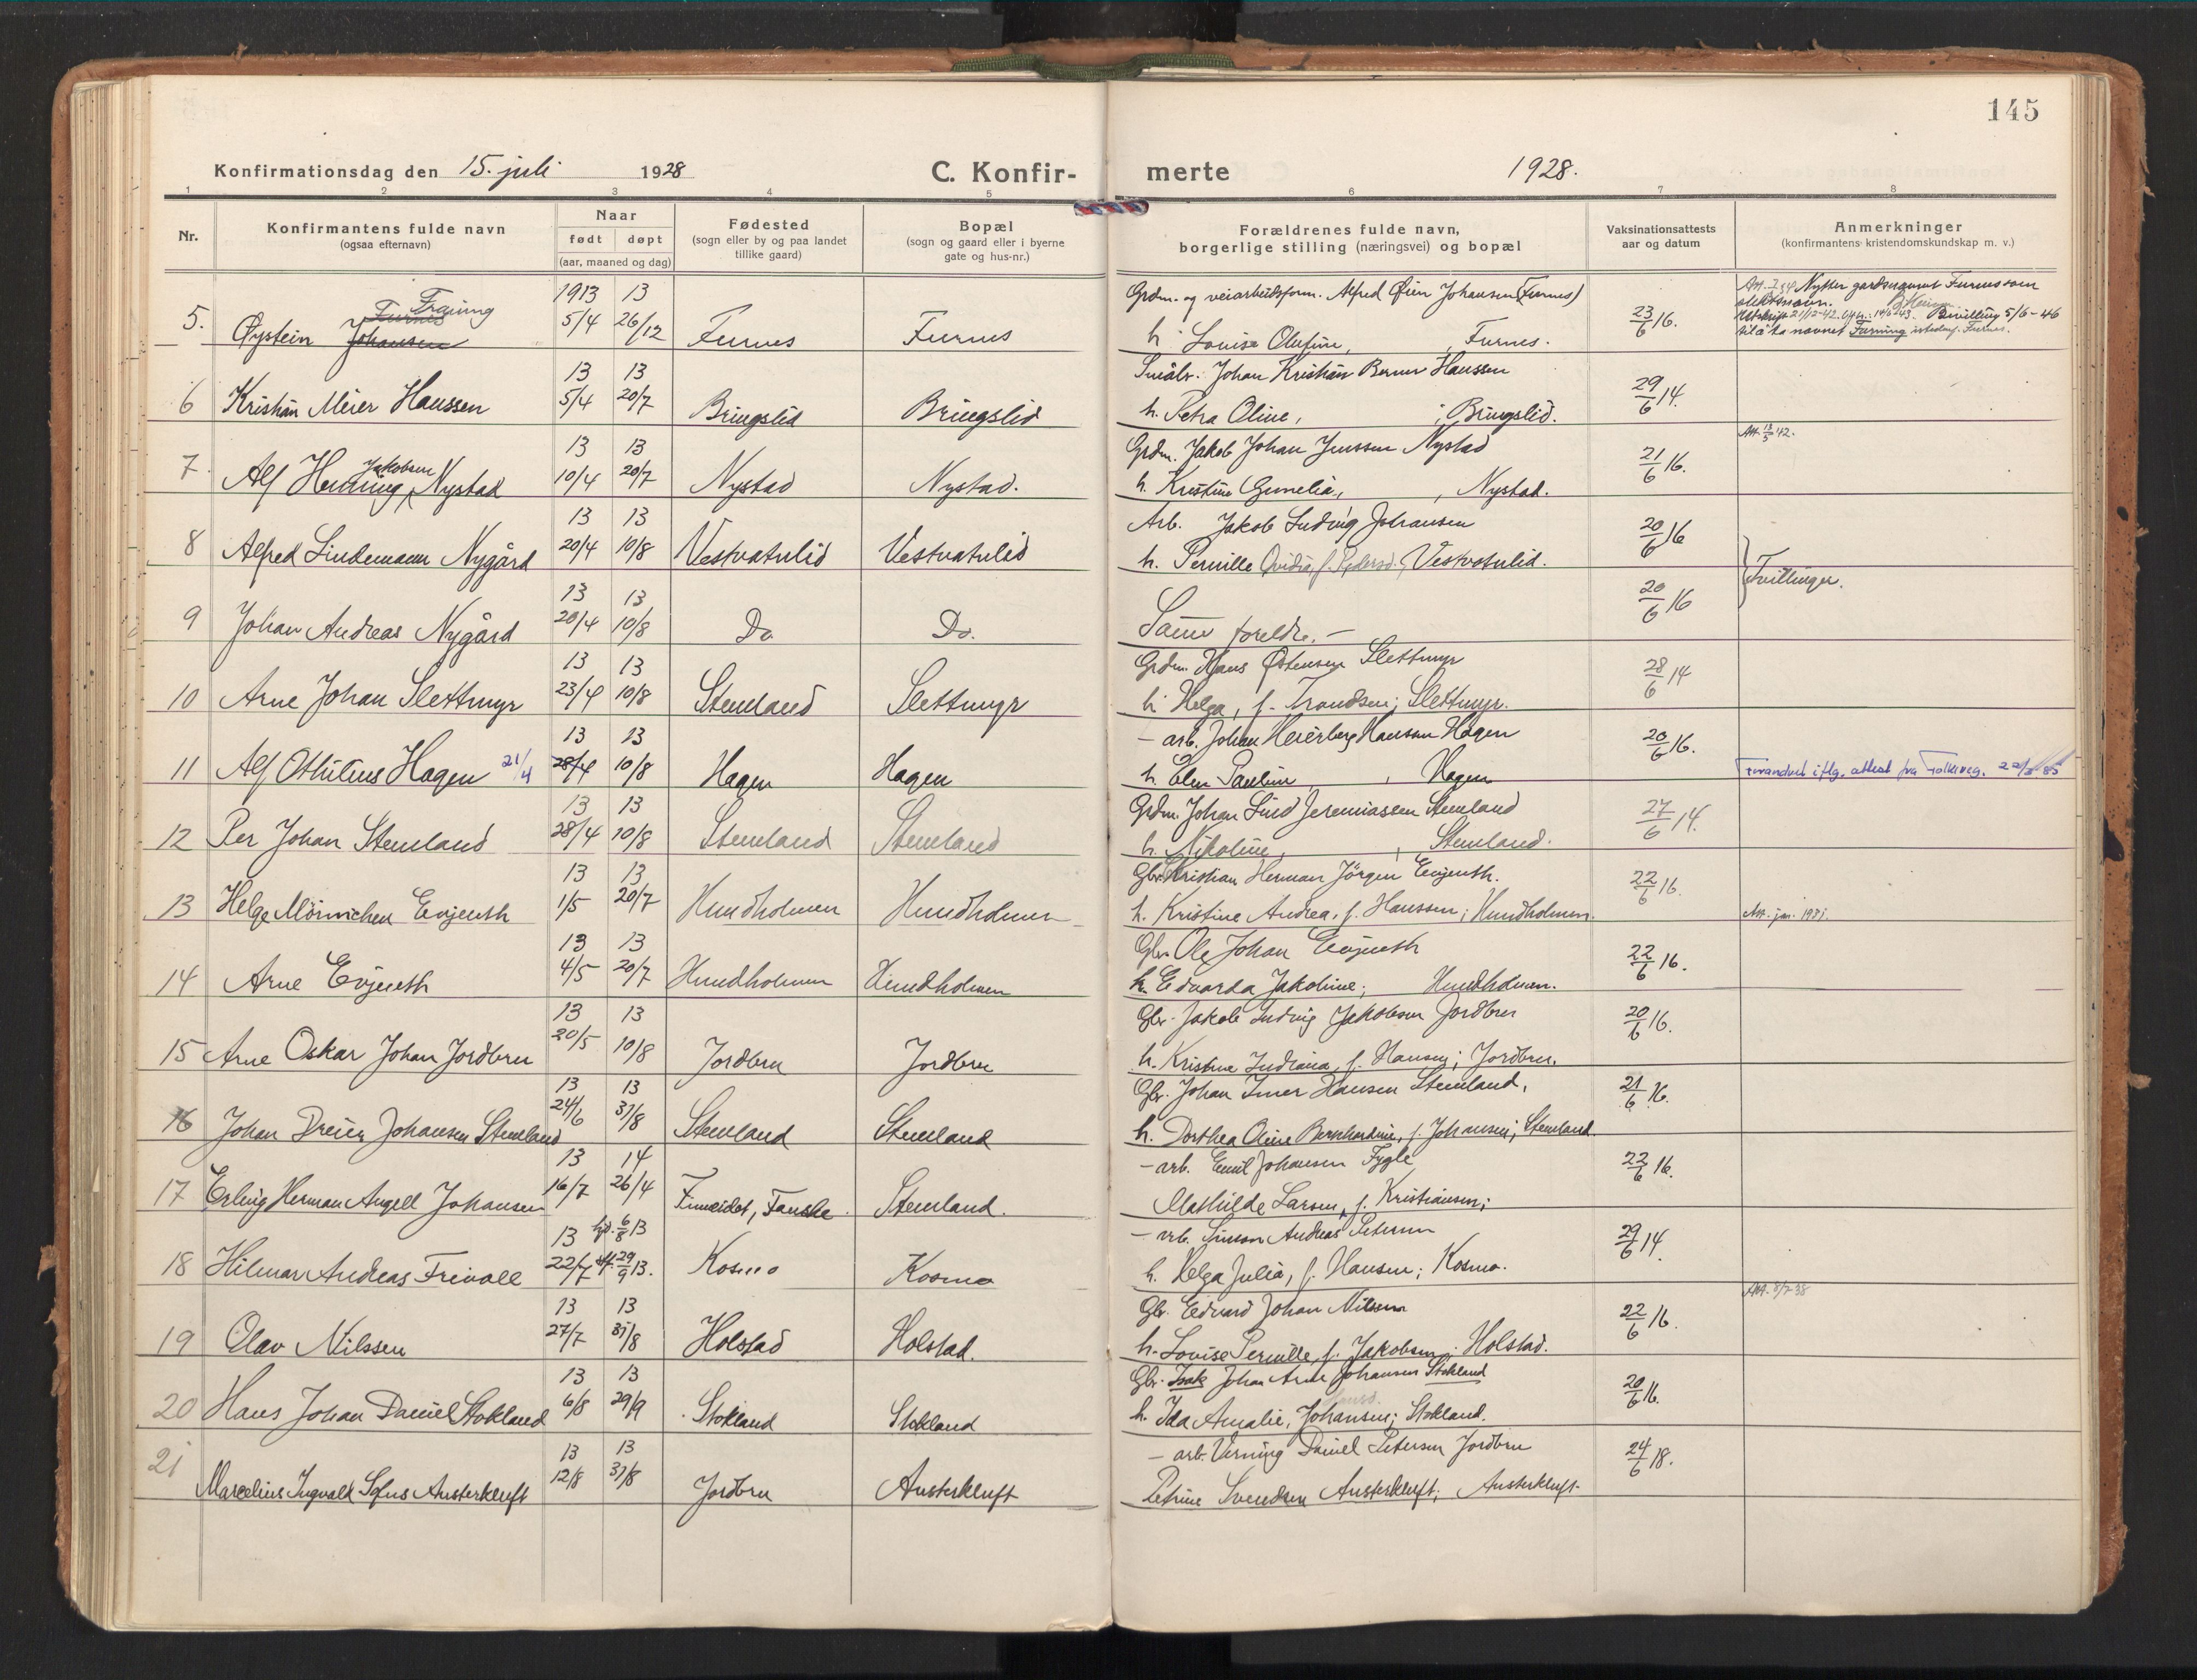 145
Konfirmationsdag den 15. juli 1928
C. Konfir-
merte 1928.
1 2 3 4 5 6 7 8
Nr.
Konfirmantens fulde navn
(ogsaa efternavn)
Naar
født døpt
(aar, maaned og dag)
Fødested
(sogn eller by og paa landet
tillike gaard)
Bopæl
(sogn og gaard eller i byerne
gate og hus-nr.)
Forældrenes fulde navn,
borgerlige stilling (næringsvei) og bopæl
Vaksinationsattests
aar og datum
Anmerkninger
(konfirmantens kristendomskundskap m. v.)
Furnes 1913 13 Grdm. og veiarbeidsform. Alfred Øien Johansen (Furnes) Nytter gardsnavnet Furnes som
slektsnavn.
5. Øystein Johansen 5/4 26/12 Furnes Furnes h. Louise Olufine, Furnes. 23/6 16. Bevilling 5/6-46
til å ta navnet istedenf. Furnes.
13 13 Småbr. Johan Kristian Hanssen
6 Kristian Meier Hanssen 5/4 20/7 Bringslid Bringslid h. Petra Oline, ; Bringslid. 29/6 14.
13 13 Grdm. Jakob Johan Jenssen Nystad Att. 42.
7. Alf Henning Jakobsen Nystad 10/4 20/7 Nystad Nystad. h. Kristine Gunelia, , Nystad. 21/6 16.
13 13 Arb. Jakob Ludvig Johansen
8 Alfred Lindemann Nygård 20/4 10/8 Vestvatnlid Vestvatnlid h. Pernille f. Pedersd. , Vestvatnlid. 20/6 16 Tvillinger.
13 13
9 Johan Andreas Nygård 20/4 10/8 Do Do. Samme foreldre. – 20/6 16
13 13 Grdm. Hans Østensen Slettmyr
10 Arne Johan Slettmyr 23/4 10/8 Stemland Slettmyr h. Helga, f. Trondsen; Slettmyr. 28/6 14
13 13 – arb. Johan Meierberg Hanssen Hagen
11 Alf Othilius Hagen 21/4 28/4 10/8 Hagen Hagen h. Elen Pauline , Hagen 20/6 16. Forandret iflg. attest fra Folkereg. 85
13 13 Grdm. Johan Lind Jeremiassen Stemland
12 Per Johan Stemland 28/4 10/8 Stemland Stemland h. Nikoline, , Stemland. 27/6 14.
13 13 Gbr. Kristian Herman Jörgen Evjenth.
13 Helge Evjenth 1/5 20/7 Hundholmen Hundholmen h. Kristine Andrea, f. Hanssen; Hundholmen. 22/6 16. Att. jan.
13 13 Gbr. Ole Johan Evjenth
14 Arne Evjenth 4/5 20/7 Hundholmen Hundholmen h. Edvarda Jakobine; Hundholmen. 22/6 16.
13 13 Gbr. Jakob Ludvig Jakobsen Jordbru
15 Arne Oskar Johan Jordbru 20/5 10/8 Jordbru Jordbru h. Kristine Indiana, f. Hansen; Jordbru. 20/6 16.
13 13 Gbr. Johan Hansen Stemland,
16 Johan Dreier Johansen Stemland 24/6 31/8 Stemland Stemland h. Dorthea Oline Bernhardine, f. Johansen; Stemland. 21/6 16.
13 14 – arb. Emil Johansen Fygle
17 Erling Herman Angell Johansen 16/7 26/4 Finneidet, Fauske Stemland. Mathilde Larsen, f. Kristiansen; 22/6 16.
13 hjd. 6/8 13 – arb. Simon Andreas Petersen
18 Hilmar Andreas Freivoll 22/7 st. 29/9 13. Kosmo Kosmo h. Helga Julia, f. Hansen; Kosmo. 29/6 14.
13 13 Gbr. Edvard Johan Nilssen Att. 8/7 38
19 Olav Nilssen 27/7 31/8 Holstad Holstad. h. Lovise Pernille, f. Jakobsen; Holstad. 22/6 16.
13 13 Gbr. Isak Johan Arnt Johansen Stokland
20 Hans Johan Daniel Stokland 6/8 29/9 Stokland Stokland h. Ida Amalie, Johansen; Stokland. 20/6 16.
13 13 – arb. Verning Daniel Petersen Jordbru
21 Marcelius Ingvald Sofus Austerkluft 12/8 31/8 Jordbru Austerkluft Petrine Svendsen Austerkluft; Austerkluft. 24/6 18.